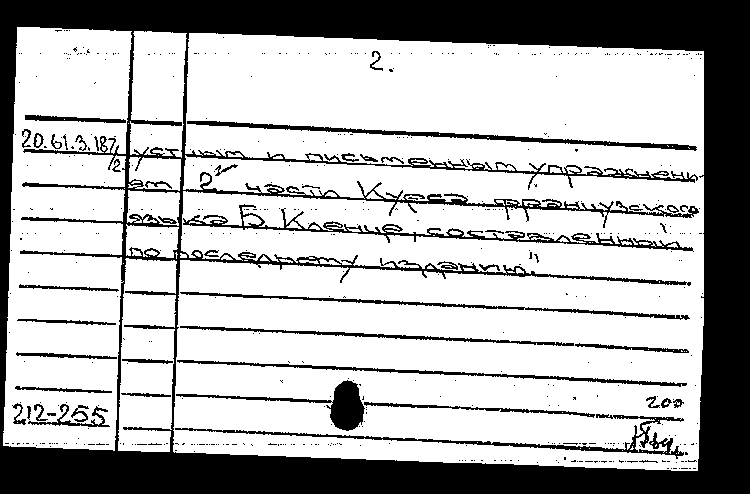 2.
20.61.3.187/2.
устным и письменным упражнени-
ям 2й части Курса французского
языка Б. Кленце, составленный
по последнему изданию."
200
212-255